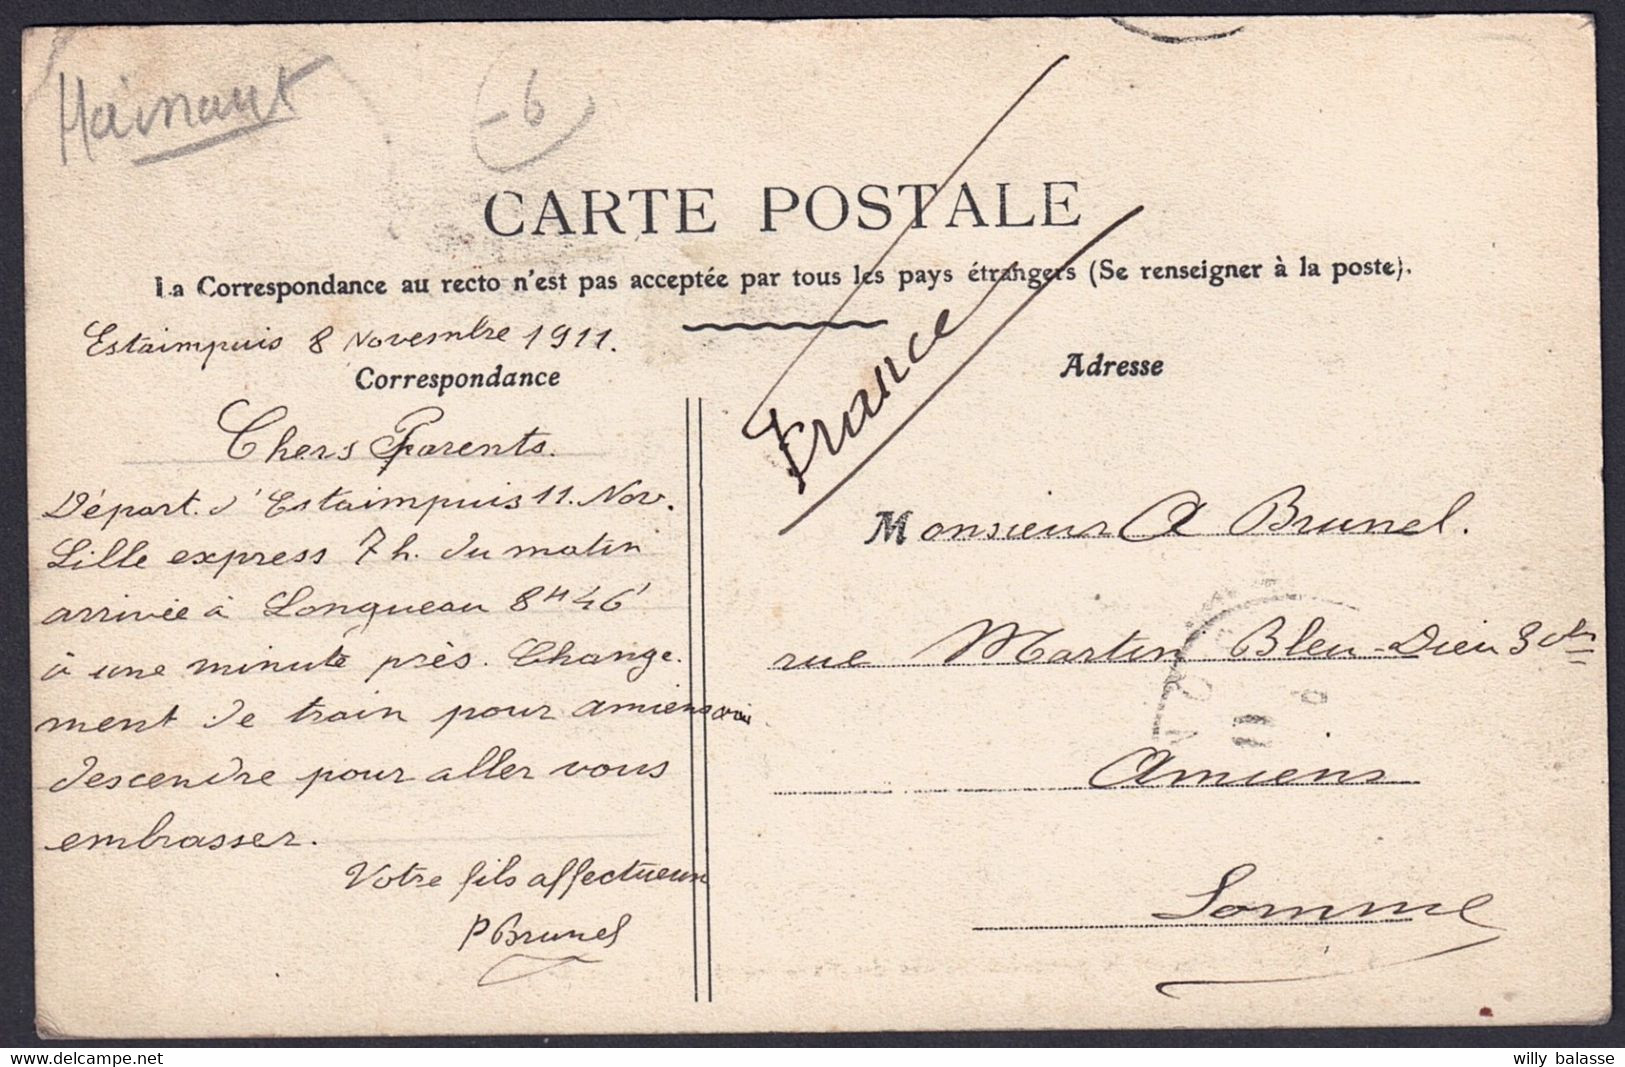 Hainaut
-6
CARTE POSTALE
La Correspondance au recto n'est pas acceptée par tous les pays étrangers (Se renseigner à la poste).
Estaimpuis 8 Novembre 1911.
Correspondance
Chers Parents.
Départ. d'Estaimpuis 11. Nov.
Lille express 7 h. du matin
arrivée à Longueau 8H46'
à une minute près. Change.
ment de train pour amiens
descendre pour aller vous
embrasser.
Votre fils affectueux
P Brunel
France
Adresse
Monsieur A Brunel.
rue Martin Bleu-Dieu 3
Amiens
Somme
willy balasse